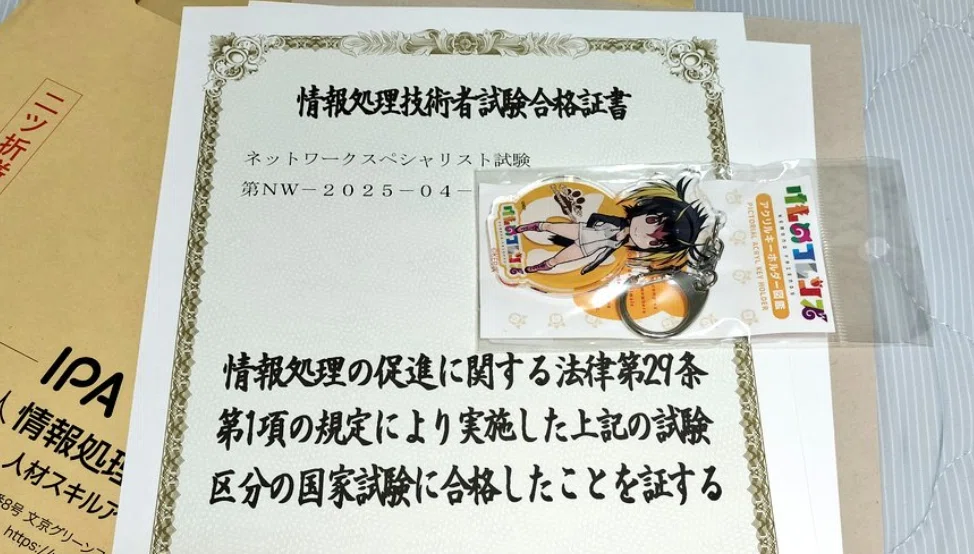 情報処理技術者試験合格証書
ネットワークスペシャリスト試験
第NW－2025－04－
情報処理の促進に関する法律第29条
第1項の規定により実施した上記の試験
区分の国家試験に合格したことを証する
けものフレンズ
アクリルキーホルダー図鑑
PICTORIAL ACRYL KEY HOLDER
けものフレンズ
二ツ折
IPA
人 情報処理
人材スキルア
番8号 文京グリーン
https://